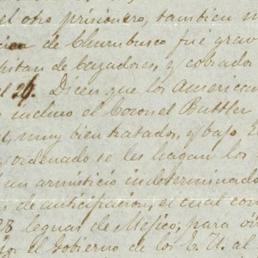 el otro prisionero, tambien
de Churubusco fué grav
pitan de Cazadores, y cobrados
el 26. Dicen que los american
incluso el Coronel Buttler
muy bien tratados, y bajo
ordenado se les hagan los
un armisticio indeterminado
de anticipacion, el cual com
28 leguas de Méjico, para
el Gobierno de los E. U. al